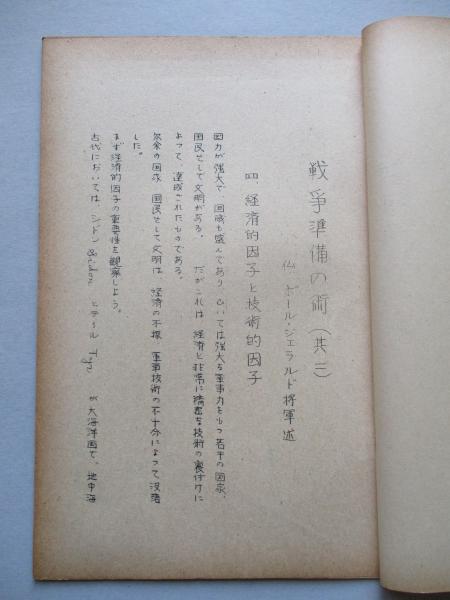 戦争準備の術(其三)
仏 ポール・ジェラルド将軍述
四、経済的因子と技術的因子
国力が強大で、国威も盛んであり ひいては強大な軍事力をもつ若干の国家、
国民そして文明がある。 だがこれは 経済と非常に精密な技術の裏付けに
よって、達成されたものである。
尓余の国家 国民そして文明は、経済の不振 軍事技術の不十分によって没落
した。
まず経済的因子の重要性を観察しよう。
古代においては、シドン Sidon とテール Tyr が大海洋国で、地中海